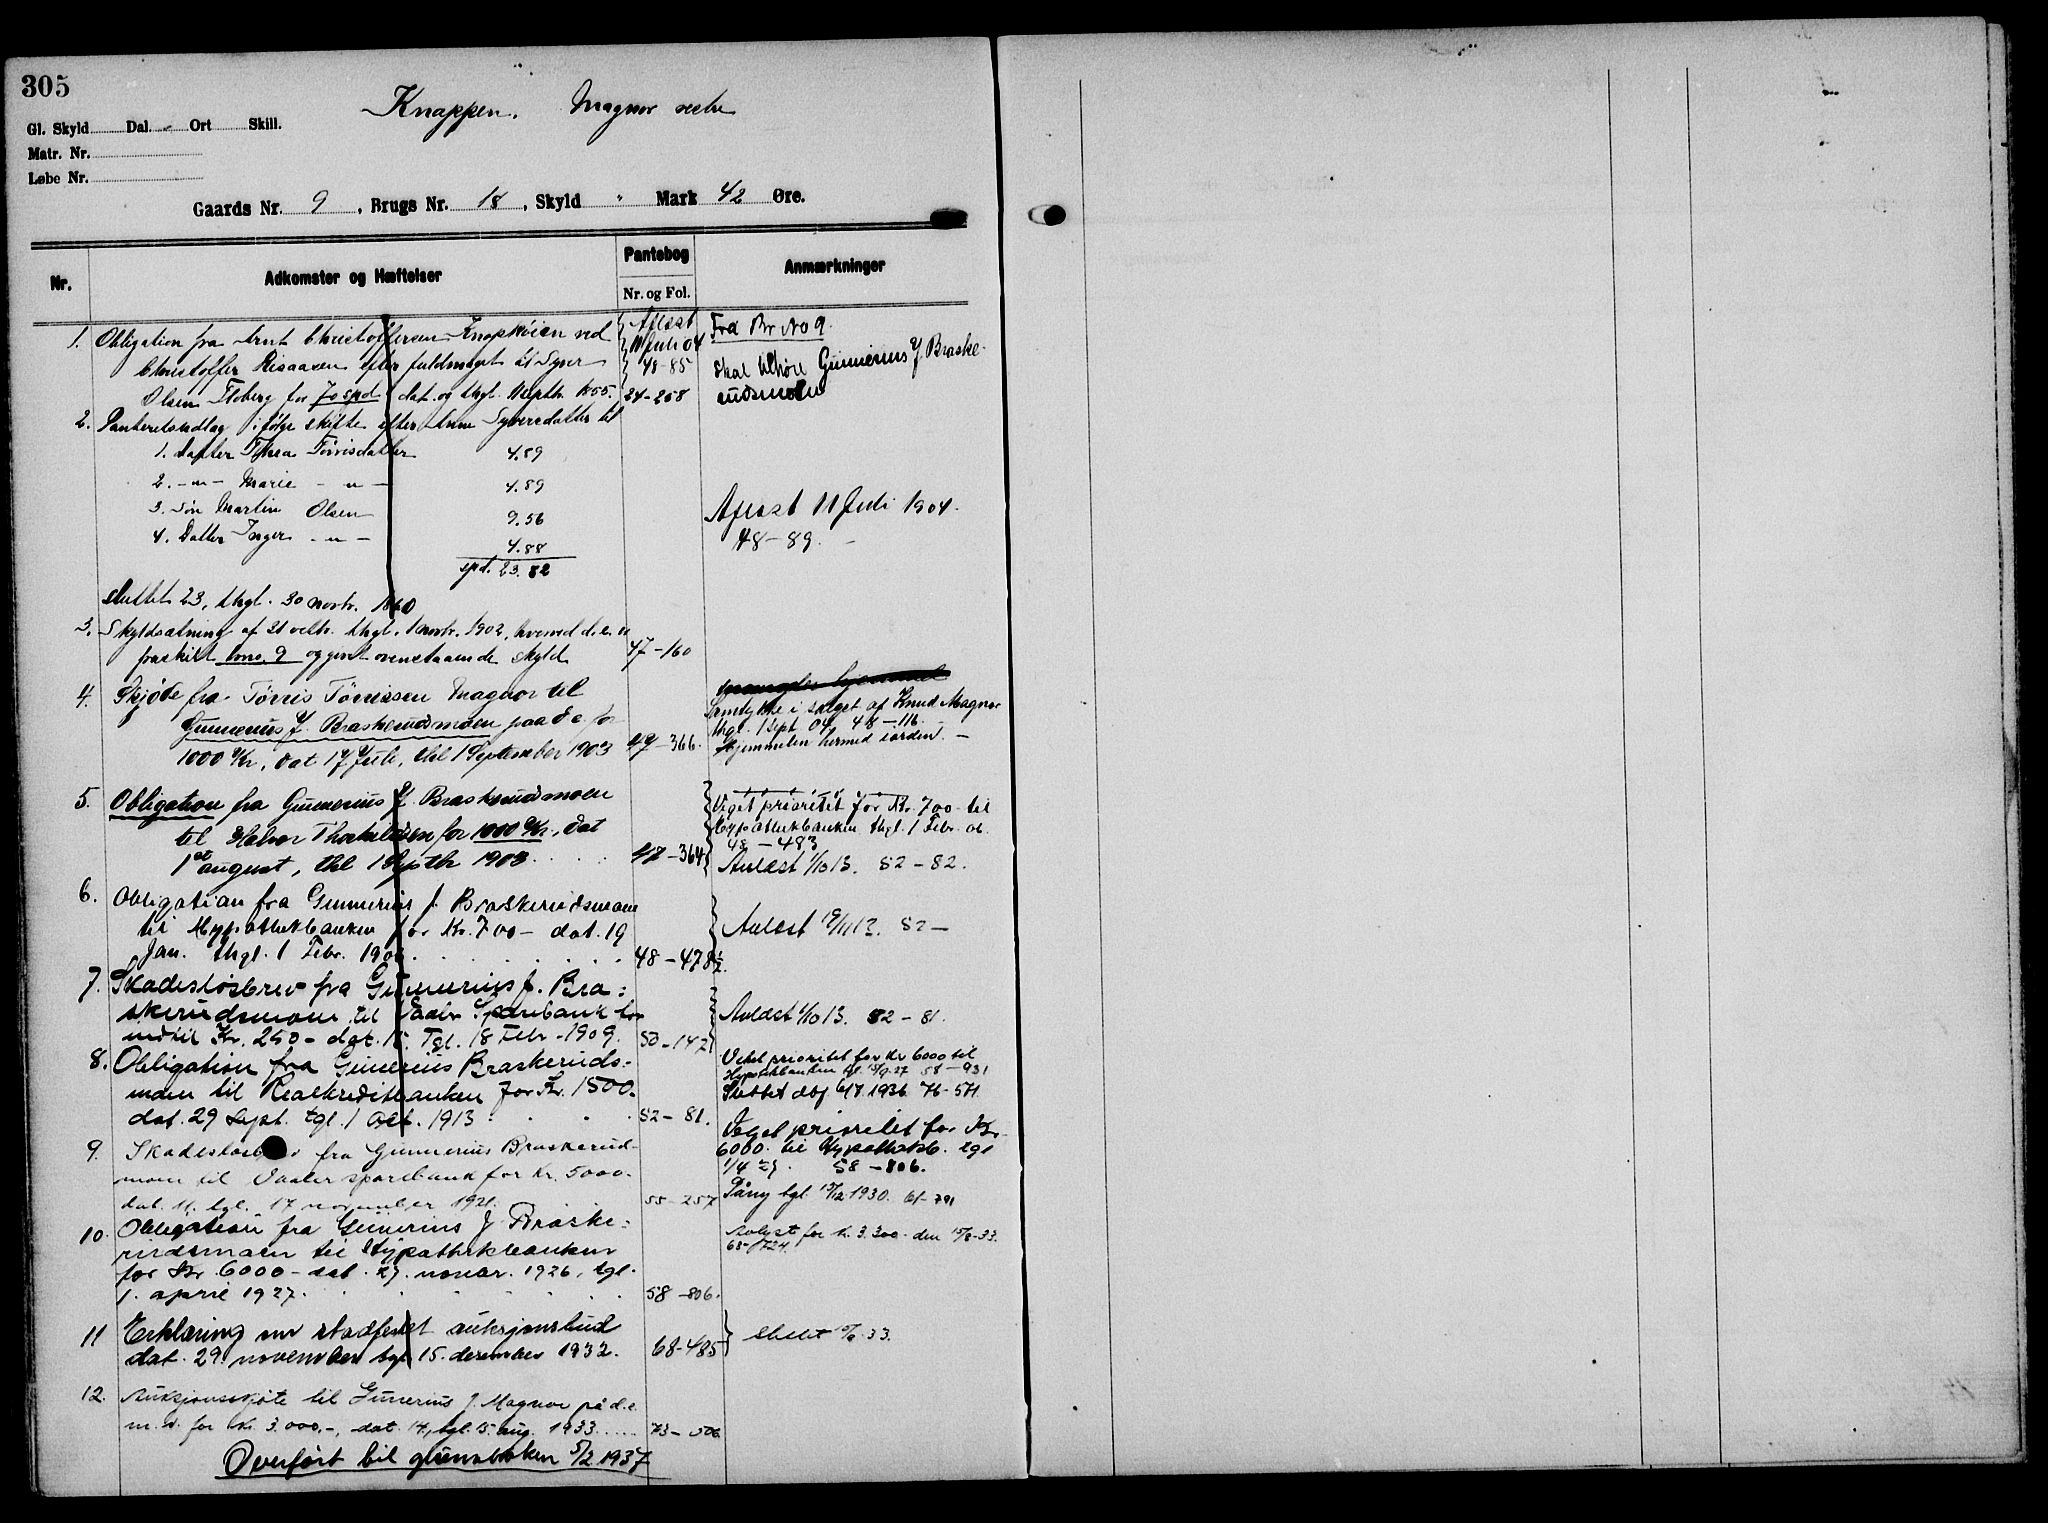 305
Knappen. Magnor vestre
Gl. Skyld Dal. Ort Skill.
Matr. Nr.
Løbe Nr.
Gaards Nr. 9, Brugs Nr. 18, Skyld " Mark 42 Øre.
Nr. Adkomster og Hæftelser Pantebog Nr. og Fol. Anmærkninger
1. Obligation fra Arnt Christoffersen Knapmoien ved
Christoffer Risaasen efter fuldmagt til Syver
Olsen Floberg for 70 spd dat. og thgl. 1855. 24-258
Aflæst 11 Juli 04 48-85
Fra Br No 9.
Skal tilhøre Gunnerius J. Braske-
rudsmoen
2. Panteretsudlæg ifølge skifte efter Anne Syversdatter til
1. Datter Thea Tørrisdatter 4.89
2. -"- Marie -"- 4.89
3. Søn Martin Olsen 9.56
4. Datter Inger -"- 4.88
spd. 23.82
sluttet 23, thgl. 30 novbr. 1860
Aflæst 11 Juli 1904.
48-89.
3. Skyldsætning af 21 oktbr. thgl. 1 novbr. 1902, hvorved d. e. er
fraskilt bno. 9 og givet ovenstaaende skyld 47-160
4. Skjøde fra Tørris Tørrissen Magnor til
Gunnerius J. Braskerudsmoen paa d e for
1000 Kr, dat 17 Juli, thl 1 September 1903 47-366.
Samtykke i salget af Knud Magnor
thgl. 1 Sept 04, 48-116.
Hjemmelen hermed iorden.
5. Obligation fra Gunnerius J. Braskerudsmoen
til Halvor Thorkildsen for 1000 Kr, dat
1st august, thl 1 Septbr 1903 47-364
Veget prioritet for Kr. 700 til
Hypothekbanken thgl. 1 Febr. 06.
48-483
Avlæst 1/10 13. 52-82.
6. Obligation fra Gunnerius J. Braskerudsmoen
til Hypothekbanken for Kr. 700- dat. 19
Jan. thgl. 1 Febr. 1906 48-478½.
Avlæst 19/11 13. 52-
7. Skadesløsbrev fra Gunnerius J. Bra:
skerudsmoen til Vaaler Sparebank for
indtil Kr. 250- dat. 15. Tgl. 18 Febr. 1909. 50-142
Avlæst 1/10 13. 52-81.
8. Obligation fra Gunnerius Braskeruds-
moen til Realkreditbanken for Kr. 1500.
dat. 29 Sept. tgl. 1 Oct. 1913 52-81.
Veket prioritet for Kr 6000 til
Hypotekbanken tgl. 15/9-27 58-931
Slettet dbf 6/7 1936 76-571
9. Skadesløsbrev fra Gunnerius Braskerud-
moen til Vaaler sparebank for Kr. 5000-
dat. 11. tgl. 17 november 1921. 55-257
Veget prioritet for Kr.
6000. til Hypothekb. tgl
1/4 27. 58-806.
Påny tgl. 15/12 1930. 61-791
10. Obligation fra Gunnerius J Braske:
rudsmoen til Hypothekbanken
for Kr 6000- dat. 27. novbr. 1926, tgl.
1. april 1927. 58-806.
Avlyst for kr. 3.300- den 15/8-33.
68-724.
11 Erklæring om stadfestet auksjonsbud
dat. 29. november tgl 15. desember 1932. 68-485
Slettet 15/8-33.
12. Auksjonsskjøte til Gunerius J. Magnor på d. e.
m. v. for kr. 3.000,-, dat. 14, tgl. 15. aug. 1933 73-506
Overført til grunnboken 5/2 1937